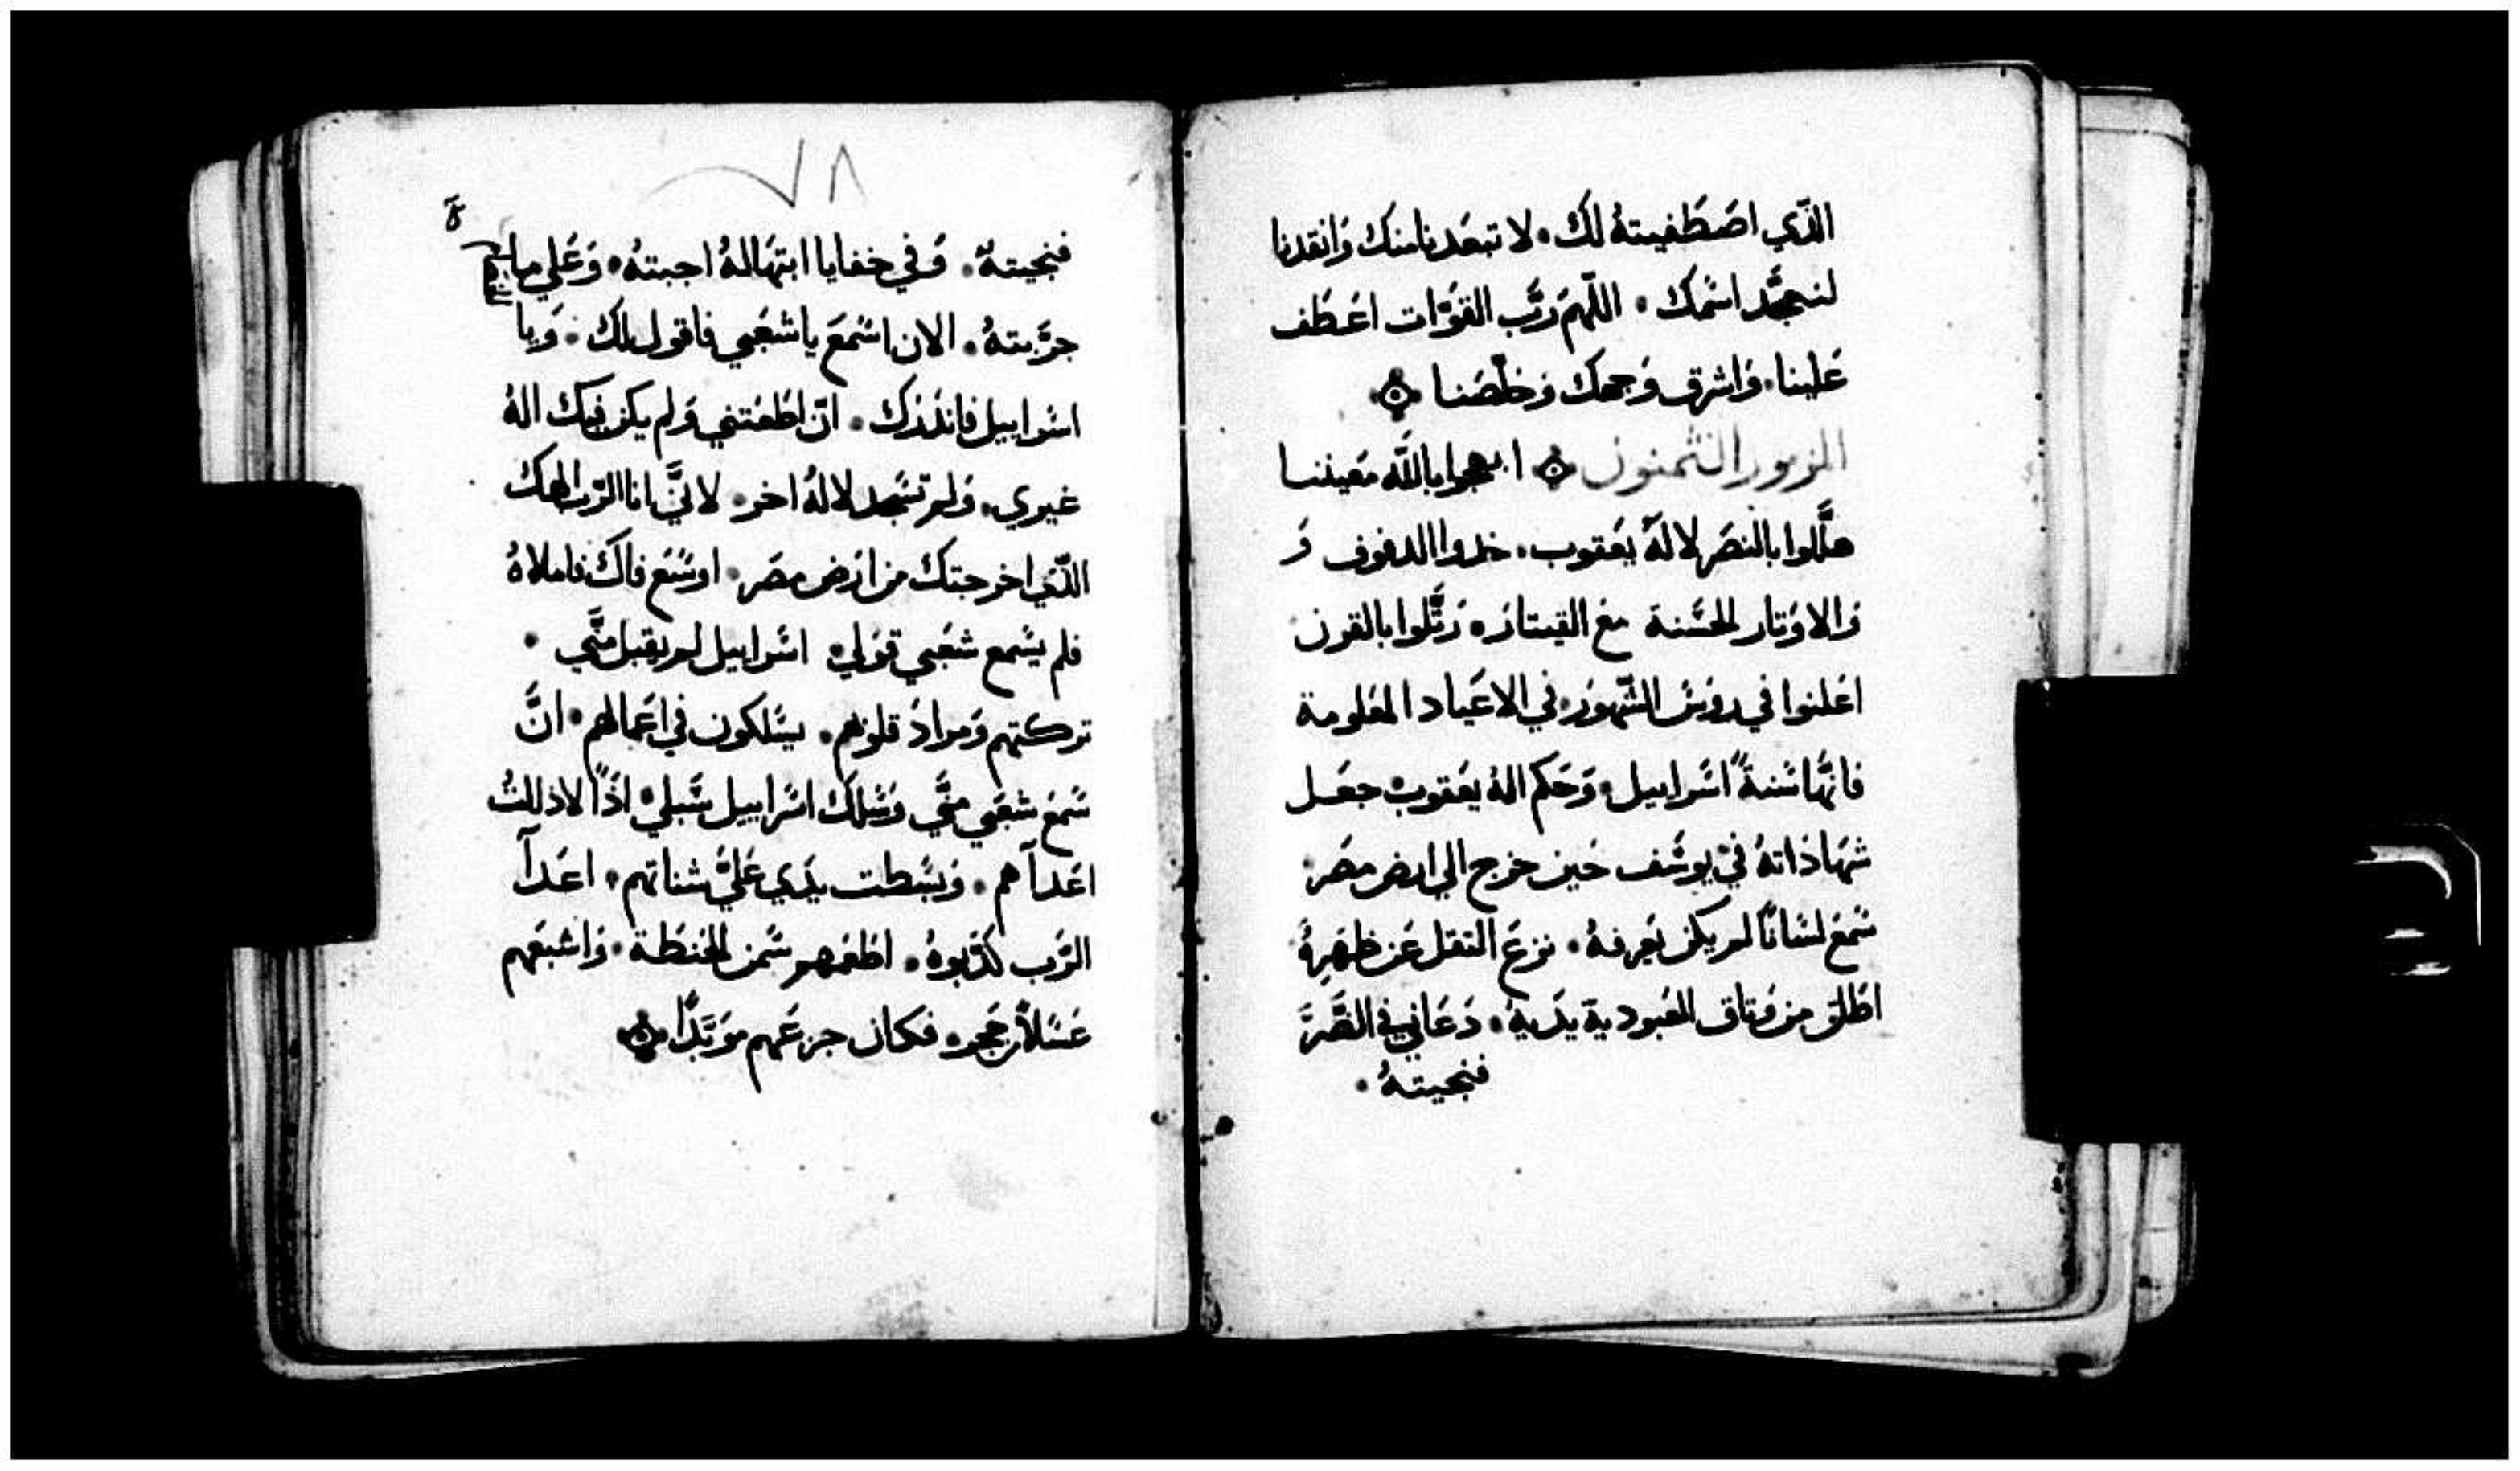 الذّي اصَطَفيتهُ لكَ. لا تبعَدنا منك وَانقدنا
لنمجَّد اسْمك . اللّهمَ رَبَّ القوَّات اعَطَف
عَلينا. وَاشرق وَجهك وَخلّصَنا
المزمور الثمنون ابهجوا بالله مَعيننا
هلَّلوا بالنصَر لالهَ يعَقوب. خدوا الدفوف وَ
وَالاوَتار الحسَنة مع القيتاَر. رَتَّلوا بالقرن
اعَلنوا في روسَ الشّهوَر. في الاعَياد المعَلومة
فانهَّا سُنةً اسَرابيل. وَحَكم الهُ يعَقوب جعَل
شهَادَاتهُ في يوسَف حَين خرج الي ارض مصَر
سَمعَ لسَاناً لم يكن يعَرفهُ. نزعَ التقل عَن ظهَرهِ
اطَلق من وَتاق العَبودية يدَيهُ. دَعَاني في الضَّرَّ
فنجيتهُ .
٧٨
فنجيتهُ. وَفي خفايا ابتهَالهُ اجبتهُ. وَعَلي ما
جرَّبتهُ. الان اسْمعَ يا شعَبي فاقول لك . وَيا
اسَرابيل فانذَرك . انّ اطَعتني وَلم يكن فيك الهُ
غيري. وَلم تسَجد لالهُ اخر. لانيَّ انا الرَّب الهك
الذّي اخرجتك من ارَض مصَر. اوسَع فاكَ فاملاهُ
فلم يسَمع شعَبي قوَلي. اسَرابيل لم يقبل منَّي .
تركتهم وَمرادَ قلوبهم. يسَلكون في اعَمالهم. انَّ
سَمع شعَبي منَّي وَسَلك اسَرابيل سَبلي. اذَاً لاذللتُ
اعَدآهم. وَبسَطت يدَي عَليَّ شناتهم. اعَدآ
الرَّب كذَّبوهُ. اطَعمَهم سَمن الحنطَة. وَاشبعَهم
عَسَلاً من حَجر. فكان جزعَهم موَبَّداً